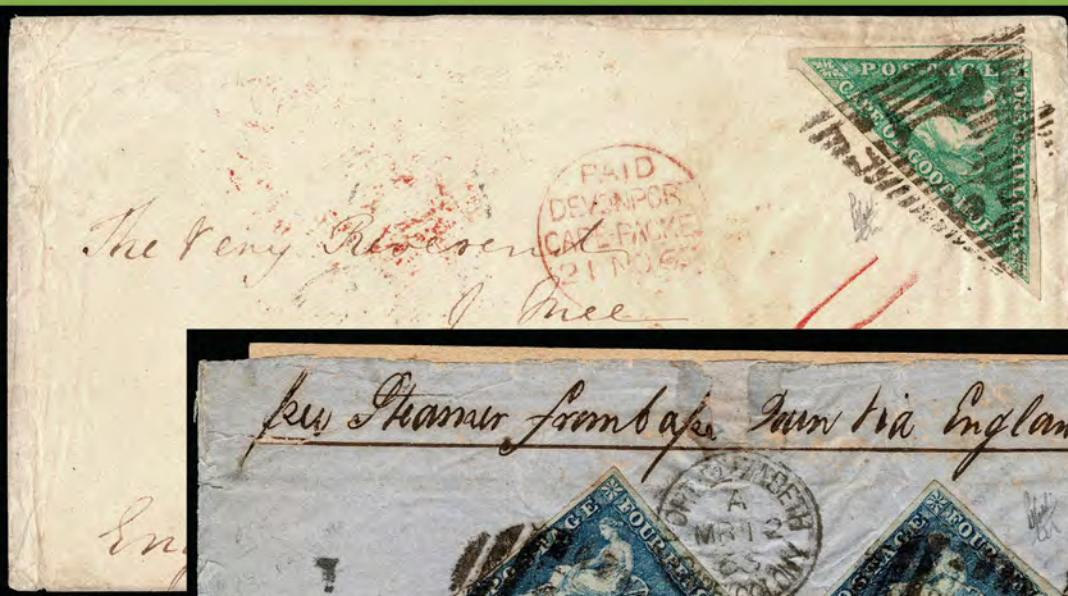 POSTAGE
CAPE OF GOOD HOPE
PAID
DEVONPOR
CAPE-PACKE
21 NO 6
The Very Reverend
J Mee
per Steamer from Cape Town via England
PORT ELIZABETH
A
MR 12
63
POSTAGE FOUR PENCE
POSTAGE FOUR
En